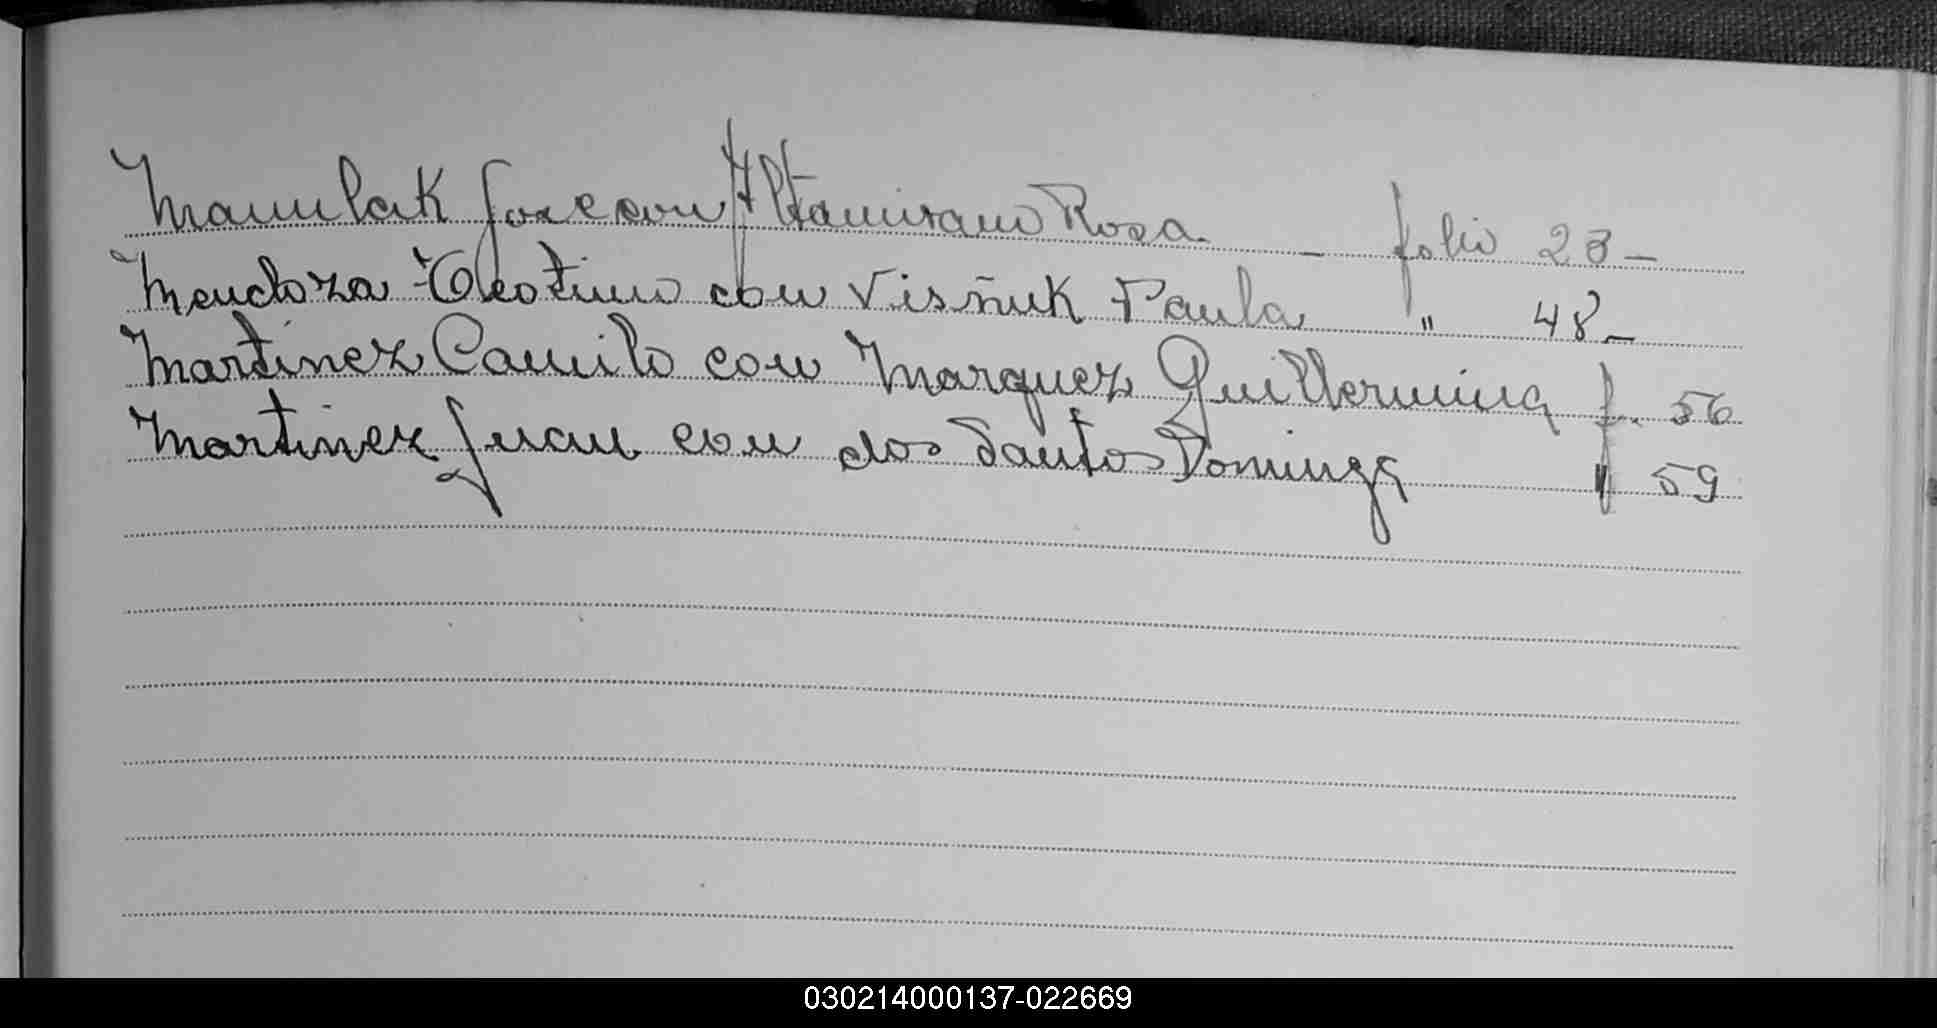 Mamulak Jose con Altamirano Rosa — folio 23 —
Mendoza Teotimo con Visñuk Paula " 48 —
Martinez Camilo con Marquez Guillermina f. 56
Martinez Juan con dos Santos Dominga " 59
030214000137-022669